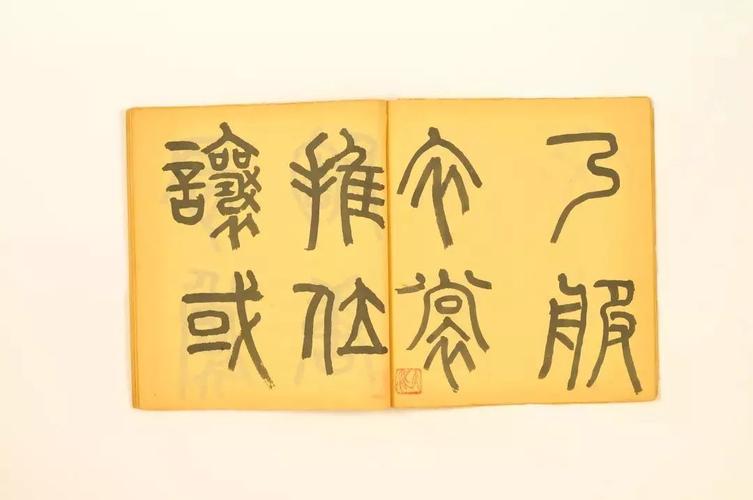 乃服
衣裳
推位
讓或